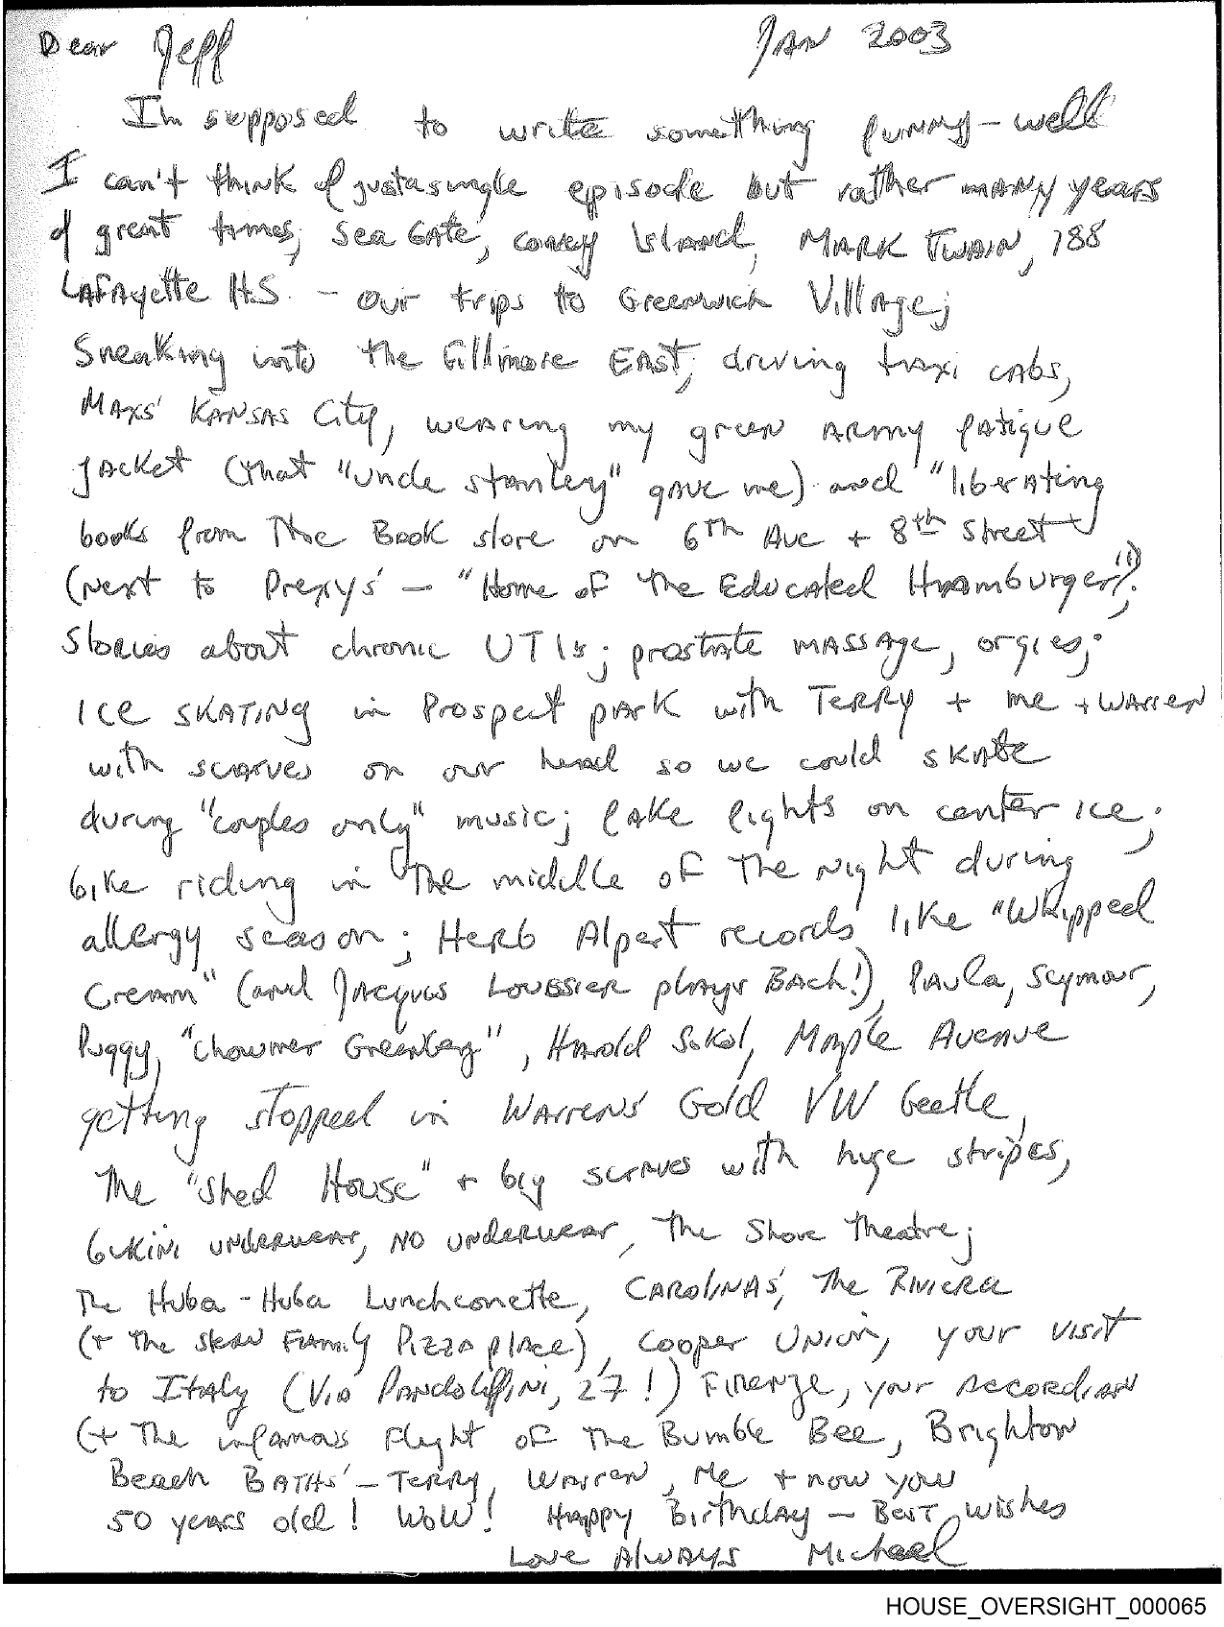 Dear Jeff JAN 2003
I'm supposed to write something funny – well
I can't think of just a single episode but rather many years
of great times, Sea Gate, Coney Island, Mark Twain, 188
Lafayette H.S. – our trips to Greenwich Village;
Sneaking into the Fillmore East; driving taxi cabs,
Maxs' Kansas City, wearing my green army fatigue
jacket (that "uncle stanley" gave me) and "liberating
books from The Book store on 6th Ave + 8th Street
(next to Prexy's – "Home of the Educated Hamburger");
Stories about chronic UTIs; prostate massage, orgies;
ice skating in Prospect park with Terry + me + Warren
with scarves on our head so we could skate
during "couples only" music; fake fights on center ice;
bike riding in the middle of the night during
allergy season; Herb Alpert records like "Whipped
Cream" (and Jacques Loussier plays Bach!), Paula, Seymour,
Puggy, "Chowmer Greenberg", Harold Sokol, Maple Avenue
getting stopped in Warrens' Gold VW beetle,
The "Shed House" + big scarves with huge stripes,
bikini underwear, no underwear, The Shore Theatre;
The Huba-Huba Luncheonette, Carolinas', The Riviera
(+ the Family Pizza place), Cooper Union, your visit
to Italy (Via Pandolffini, 27!) Firenze, your accordian
(+ The infamous Flight of The Bumble Bee, Brighton
Beach Baths' – Terry, Warren, Me + now you
50 years old! WOW! Happy Birthday – Best wishes
Love Always Michael
HOUSE_OVERSIGHT_000065